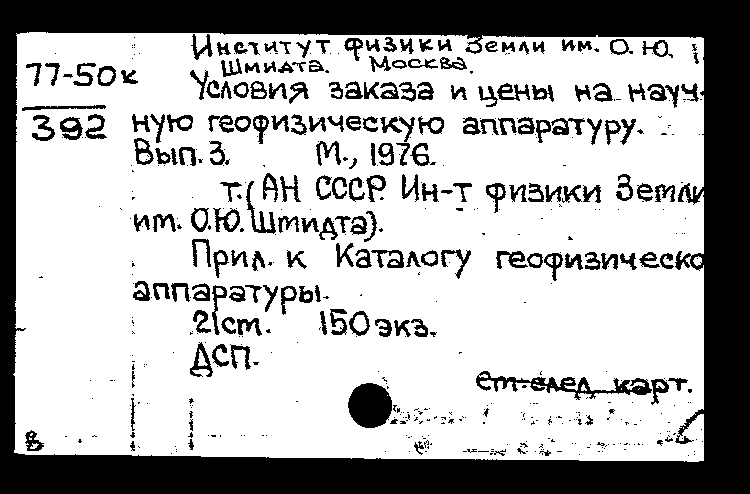 Институт физики Земли им. О.Ю.
Шмидта. Москва.
77-50к
392
Условия заказа и цены на науч-
ную геофизическую аппаратуру.
Вып. 3. М., 1976.
т. (АН СССР. Ин-т физики Земли
им. О.Ю. Шмидта).
Прил. к Каталогу геофизическо
аппаратуры.
21см. 150 экз.
ДСП.
см. след. карт.
В